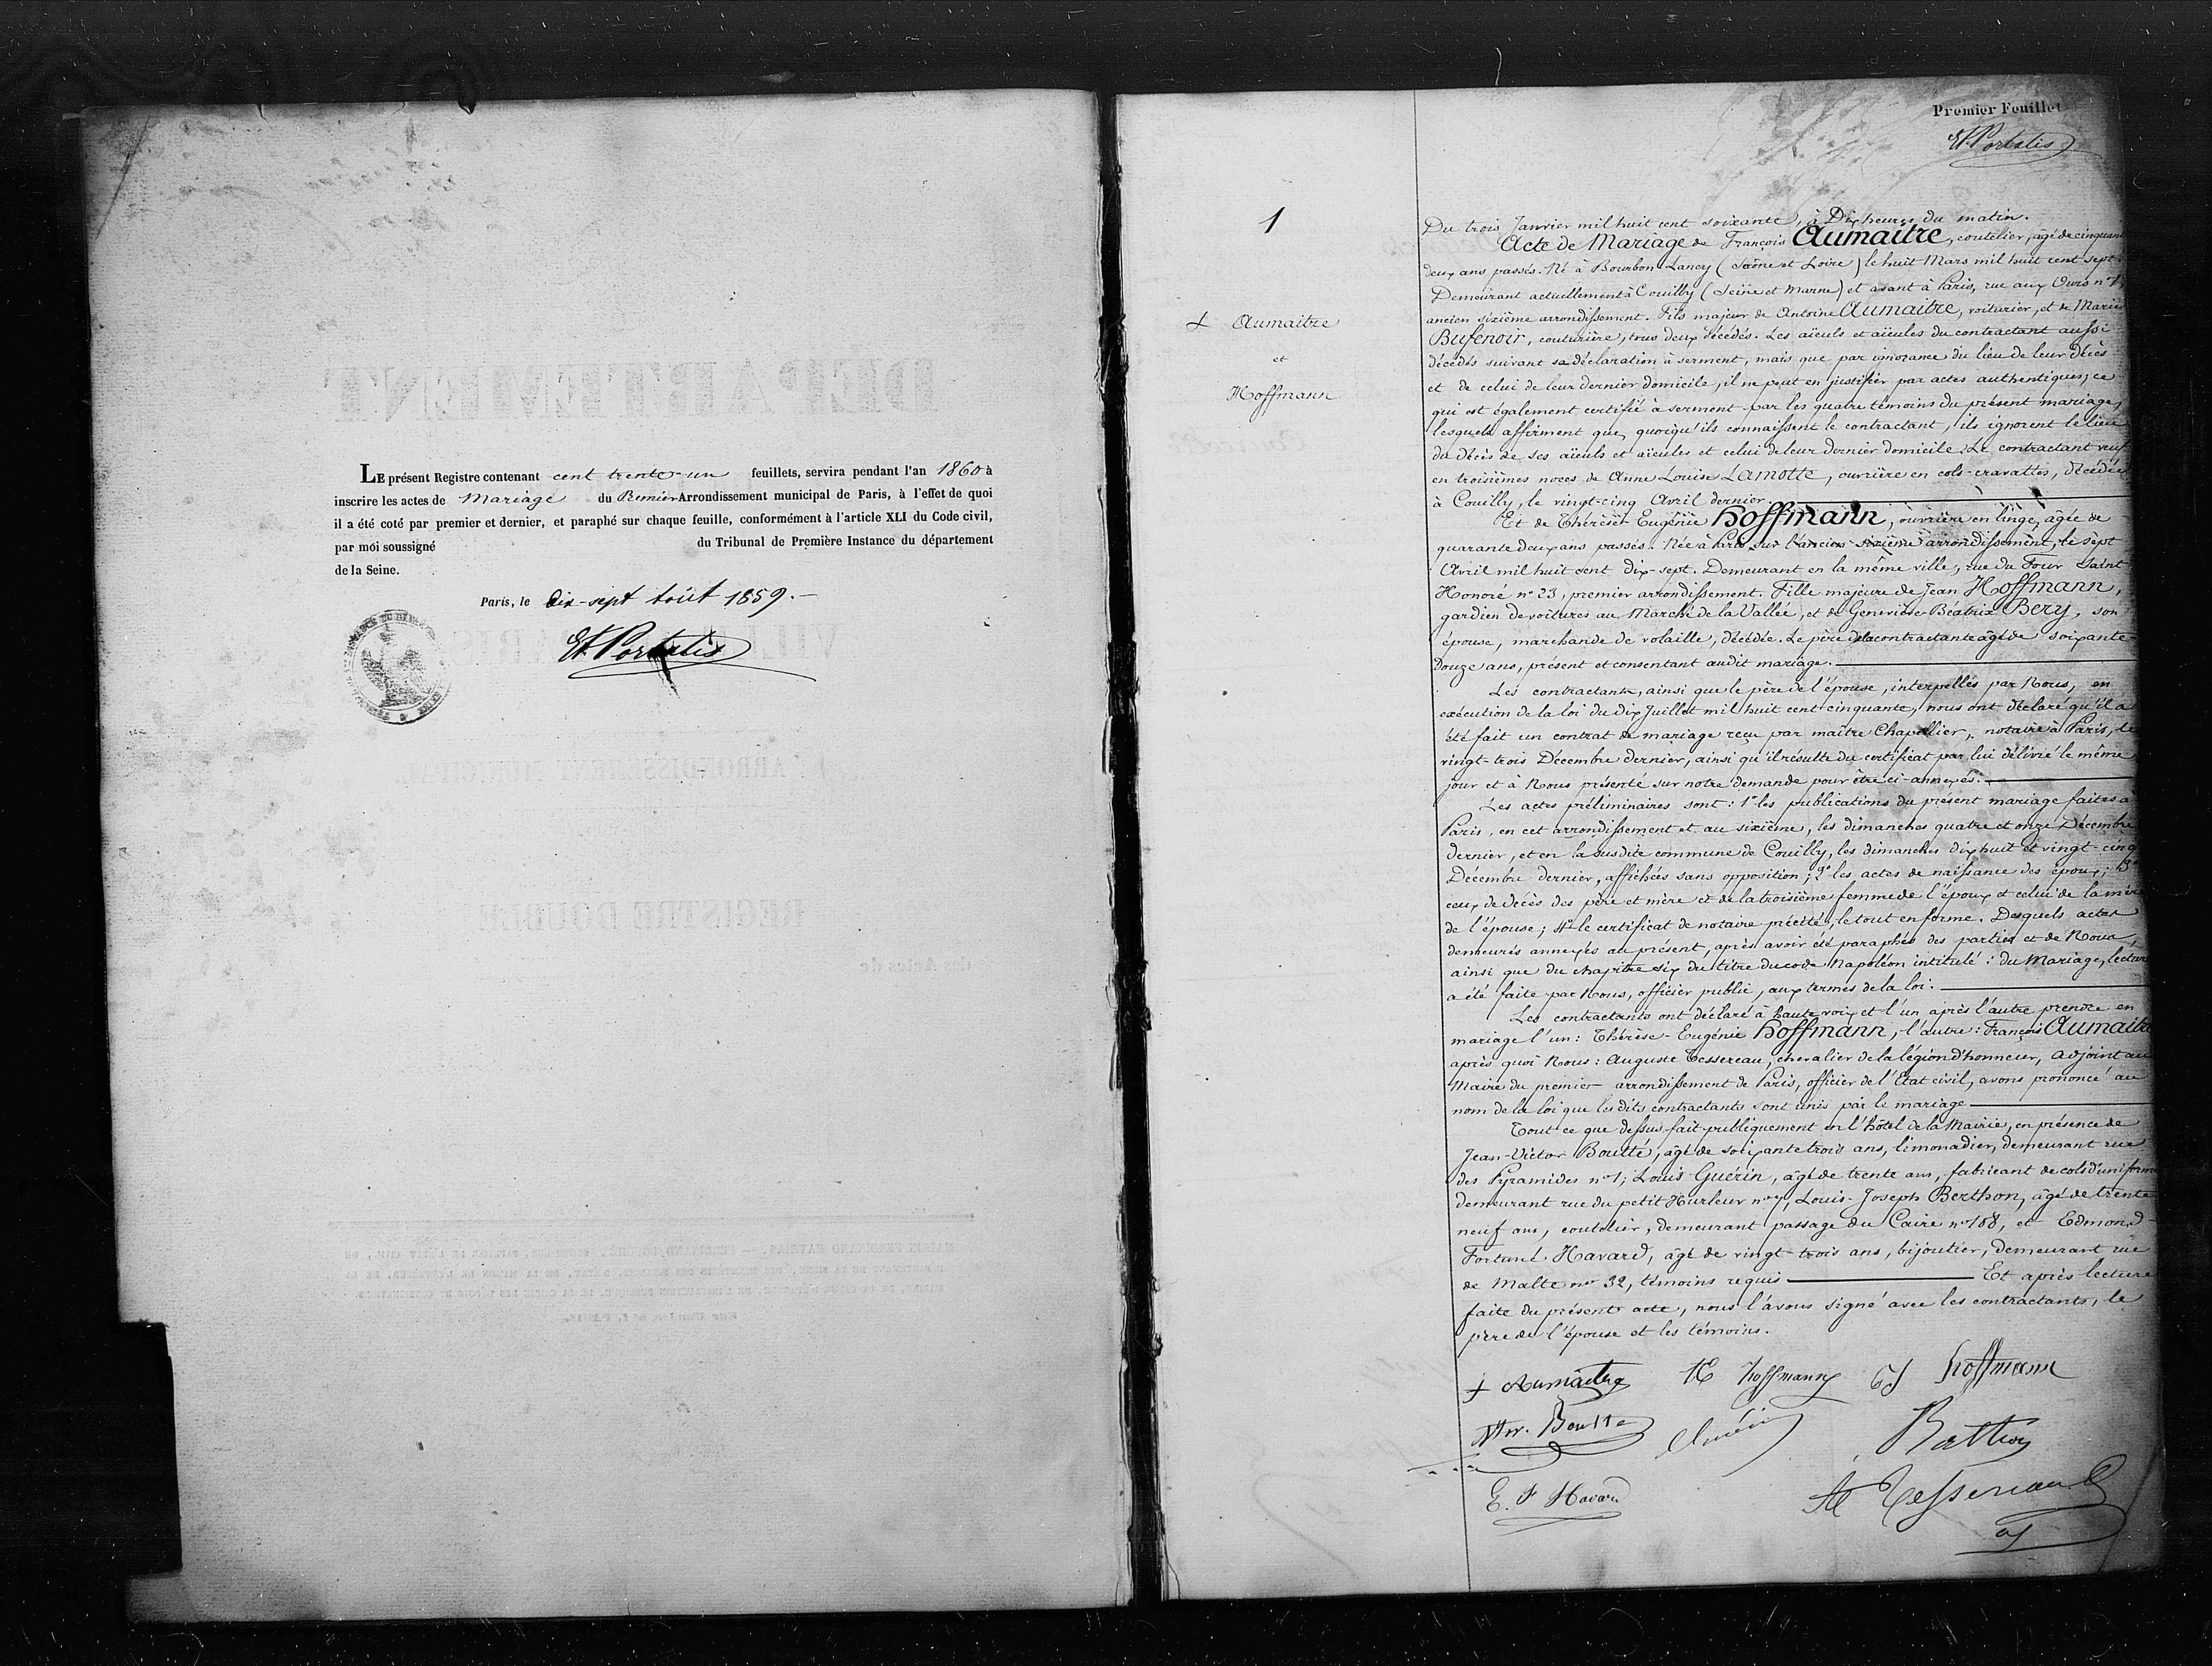 LE présent Registre contenant cent trente-un feuillets, servira pendant l'an 1860 à
inscrire les actes de Mariage du Premier Arrondissement municipal de Paris, à l'effet de quoi
il a été coté par premier et dernier, et paraphé sur chaque feuille, conformément à l'article XLI du Code civil,
par moi soussigné du Tribunal de Première Instance du département
de la Seine.
Paris, le dix-sept août 1859.-
Portalis
Premier Feuillet
Portalis
1
Aumaitre
et
Hoffmann
Du trois Janvier mil huit cent soixante, à Dix heures du matin.
Acte de Mariage de François Aumaitre, coutelier, âgé de cinquante
deux ans passés. Né à Bourbon Lancy (Saône et Loire) le huit Mars mil huit cent sept.
Demeurant actuellement à Couilly (Seine et Marne) et avant à Paris, rue aux Ours n° 1,
ancien sixième arrondissement. Fils majeur de Antoine Aumaitre, voiturier, et de Marie
Bufenoir, couturière, tous deux décédés. Les aïeuls et aïeules du contractant aussi
décédés suivant sa déclaration à serment, mais que par ignorance du lieu de leur décès
et de celui de leur dernier domicile, il ne peut en justifier par actes authentiques; ce
qui est également certifié à serment par les quatre témoins du présent mariage,
lesquels affirment que, quoiqu'ils connaissent le contractant, ils ignorent le lieu
du décès de ses aïeuls et aïeules et celui de leur dernier domicile. Le contractant veuf
en troisièmes noces de Anne Louise Lamotte, ouvrière en cols-cravattes, décédée
à Couilly, le vingt-cinq Avril dernier.
Et de Thérèse-Eugénie Hoffmann, ouvrière en linge, âgée de
quarante deux ans passés. Née à Paris sur l'ancien sixième arrondissement, le sept
Avril mil huit cent dix-sept. Demeurant en la même ville, rue du Four Saint
Honoré n° 23, premier arrondissement. Fille majeure de Jean Hoffmann,
gardien de voitures au Marché de la Vallée, et de Geneviève Béatrix Bery, son
épouse, marchande de volaille, décédée. Le père de la contractante âgé de soixante-
Douze ans, présent et consentant audit mariage.
Les contractants, ainsi que le père de l'épouse, interpellés par Nous, en
exécution de la loi du dix Juillet mil huit cent cinquante, nous ont déclaré qu'il a
été fait un contrat de mariage reçu par maître Chapellier, notaire à Paris, le
vingt-trois Décembre dernier, ainsi qu'il résulte du certificat par lui délivré le même
jour et à Nous présenté sur notre demande pour être ci-annexés.
Les actes préliminaires sont: 1° les publications du présent mariage faites à
Paris, en cet arrondissement et au sixième, les dimanches quatre et onze Décembre
dernier, et en la susdite commune de Couilly, les dimanches dix huit et vingt-cinq
Décembre dernier, affichées sans opposition; 2° les actes de naissance des époux; 3°
ceux de décès des père et mère et de la troisième femme de l'époux et celui de la mère
de l'épouse; 4° le certificat de notaire précité, le tout en forme. Desquels actes
demeurés annexés au présent, après avoir été paraphés des parties et de Nous,
ainsi que du chapitre six du titre du code Napoléon intitulé: du Mariage, lecture
a été faite par Nous, officier public, aux termes de la loi.
Les contractants ont déclaré à haute voix et l'un après l'autre prendre en
mariage l'un: Thérèse-Eugénie Hoffmann, l'autre: François Aumaitre
après quoi Nous: Auguste Tessereau, chevalier de la légion d'honneur, adjoint au
Maire du premier arrondissement de Paris, officier de l'Etat civil, avons prononcé au
nom de la loi que les dits contractants sont unis par le mariage
Tout ce que dessus fait publiquement en l'hôtel de la Mairie, en présence de
Jean-Victor Boutté, âgé de soixante trois ans, limonadier, demeurant rue
des Pyramides n° 1; Louis Guérin, âgé de trente ans, fabricant de cols d'uniforme
demeurant rue du petit Hurleur n° 7, Louis-Joseph Berthon, âgé de trente
neuf ans, coutelier, demeurant passage du Caire n° 108, et Edmond-
Fortuné Havard, âgé de vingt-trois ans, bijoutier, demeurant rue
de Malte n° 32, témoins requis Et après lecture
faite du présent acte, nous l'avons signé avec les contractants, le
père de l'épouse et les témoins.
Aumaitre hoffmann hoffmann
Boutté Guérin Berthon
E. F Havard A Tessereau